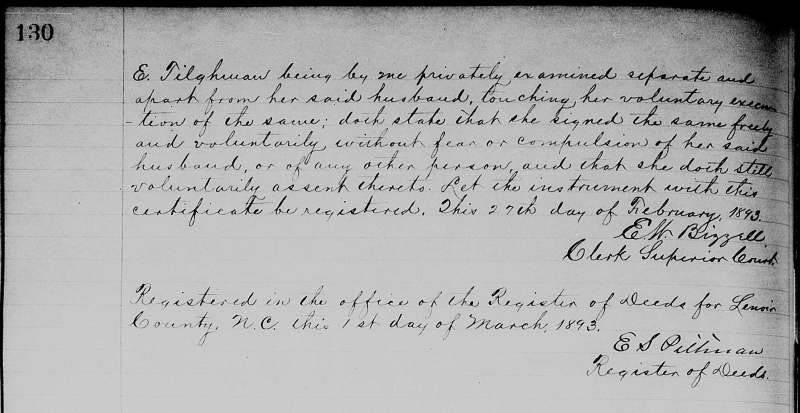 130
E. Tilghman being by me privately examined separate and
apart from her said husband, touching her voluntary execu
-tion of the same; doth state that she signed the same freely
and voluntarily, without fear or compulsion of her said
husband, or of any other person, and that she doth still
voluntarily assent thereto. Let the instrument with this
certificate be registered. This 27th day of February, 1893.
E. W. Bizzell
Clerk Superior Court.
Registered in the office of the Register of Deeds for Lenoir
County, N.C. this 1st day of March, 1893.
E S Pittman
Register of Deeds.